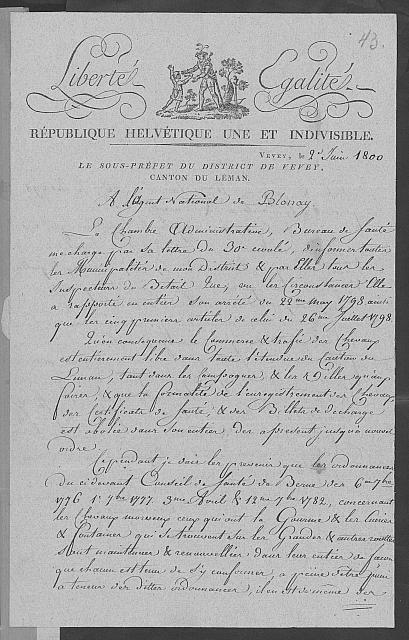 43.
Liberté Egalité
RÉPUBLIQUE HELVÉTIQUE UNE ET INDIVISIBLE.
VEVEY, le 2e Juin 1800
LE SOUS-PRÉFET DU DISTRICT DE VEVEY,
CANTON DU LÉMAN.
A l'Agent National de Blonay
La Chambre Administrative, Bureau de Santé
me charge par sa lettre du 30e écoulé, d'informer toutes
les Municipalités de mon District & par Elles tous les
Inspecteurs du Bétail que, vu les circonstances Elle
a rapporté en entier son arrêté du 22me may 1798 ainsi
que les cinq premiers articles de celui du 26me Juillet 1798.
Qu'en conséquence le Commerce & trafic des Chevaux
est entierement libre dans toute l'étendue du Canton du
Léman, tant dans les Campagnes, & les Villes qu'aux
foires, & que la formalité de l'enregistrement des Chevaux
des Certificats de Santé, & des Billets de décharge
est abolie dans son entier dès aprésent jusqu'à nouvel
ordre.
Cependant je dois les prevenir que les ordonnances
du cidevant Conseil de Santé de Berne des 6me 7bre
1776 1r 7bre 1777. 3me Avril & 12me 7bre 1782, concernant
les Chevaux morveux ceux qui ont la Gourme & les Cuviers
& Fontaines qui se trouvent sur les Grandes & autres routes
sont maintenues & renouvellées dans leur entier de façon
que chacun est tenu de s'y conformer, a peine d'être puni
a teneur des dittes ordonnances, il en est de même des